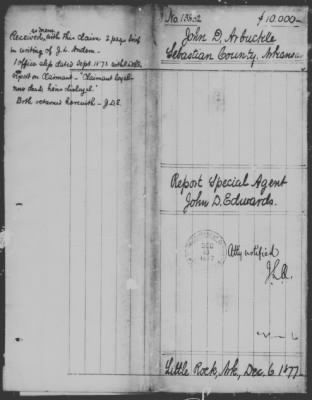 in mem
Received with this Claim 2 page brief
in writing of J. L. Andem.
1 Office slip dated Sept. 1873 with
Report on Claimant - "Claimant loyal-
now dead; heirs disloyal"
Both returned herewith - J.D.E.
No. 13602 $10,000 —
John D. Arbuckle
Sebastian County, Arkansas
Report Special Agent
John D. Edwards.
DEC
1877
Atty notified
Little Rock, Ark, Dec. 6 1877